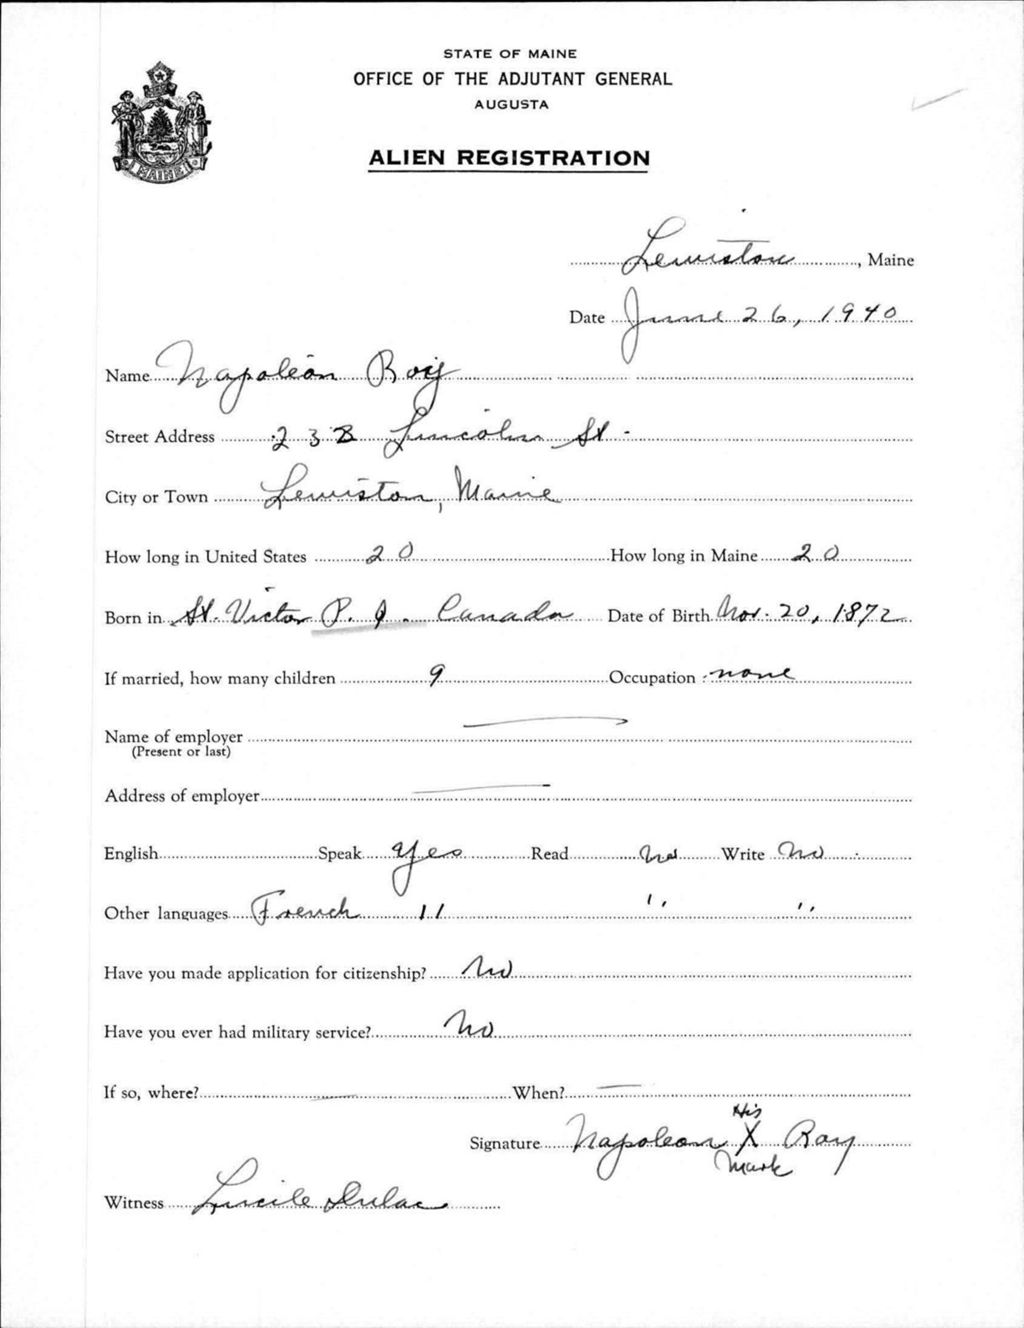 STATE OF MAINE
OFFICE OF THE ADJUTANT GENERAL
AUGUSTA
ALIEN REGISTRATION
MAINE
Lewiston, Maine
Date June 26, 1940
Name Napoleon Roy
Street Address 238 Lincoln St.
City or Town Lewiston, Maine
How long in United States 20 How long in Maine 20
Born in St. Victor P. Q. Canada Date of Birth Nov. 20, 1872
If married, how many children 9 Occupation none
Name of employer
(Present or last)
Address of employer
English Speak Yes Read No Write No
Other languages French " " "
Have you made application for citizenship? No
Have you ever had military service? No
If so, where? When?
His
Signature Napoleon X Roy
Mark
Witness Lucile Dulac